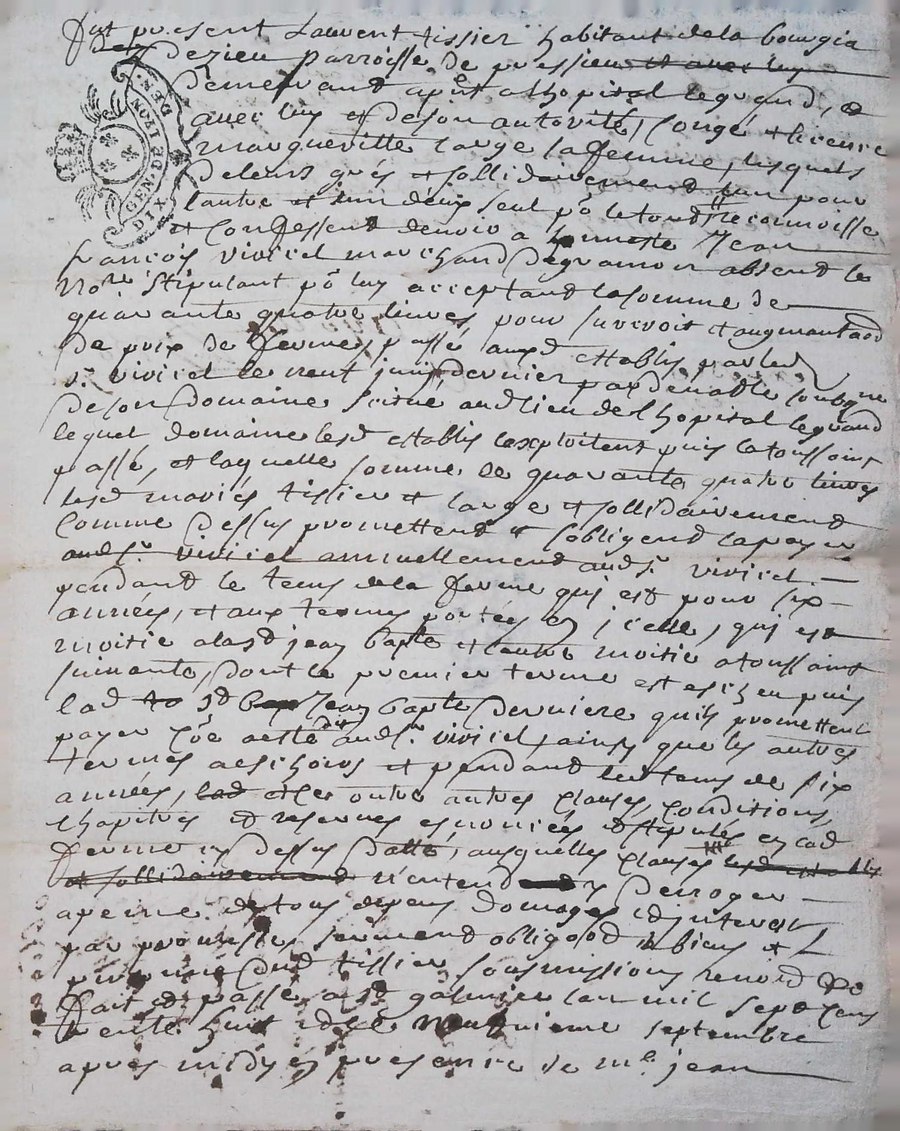 fut present Laurent tissier habitant de la bourgia
dezieu parroisse de pressieu et avec luy
demeurant aprêt a lhopital legrand, &
avec luy et de son autorité, congé et licence
margueritte large sa femme, lesquels
de leurs grés et sollidairement lun pour
lautre et lun deux seul po le tout reconnoisse
et confessent devoir a honneste Jean
françois viviel marchand de absend le
Nore stipulant po luy acceptand la somme de
quarante quatre livres pour survoit et augmentaôn
de prix de ferme passé auxd establis par led
sr viviel le vent juin dernier par devant le soubgné
de son domaine scitué aud lieu de lhopital legrand
lequel domaine lesd establis lexploitent puis la toussaint
passé, et laquelle somme de quarante quatre livres
lesd mariés tissier et large et sollidairement
comme dessus promettend et sobligend la payer
aud sr viviel annuellement aud sr viviel
pendant le tems de la ferme qui est pour six
années, et aux termes portés en icelle, qui est
moitié a la st jean bapte et lautre moitié a toussaint
suivante, dont le premier terme est escheu puis
lad st Jean bapte derniere quils promettent
payer aud sr viviel, ainsy que les autres
termes a eschoirs et pendand le tems de six
années, lad et les outre autres clauses, conditions,
chapitres et reserves enoncées et stipulés en lad
ferme cy dessus datté, ausquelles clauses lesd establis
et sollidairement n'entend y derroger
a peine de tous depens domages et interêts
par promisses serment obligaôd de biens et
dud tissier sousmissions renond &c
fait et passé a st galmier lan mil sept cens
trente huit et le neufvieme septembre
apres midy en presence de me jean
GEN. DE LYON
DIX DEN.